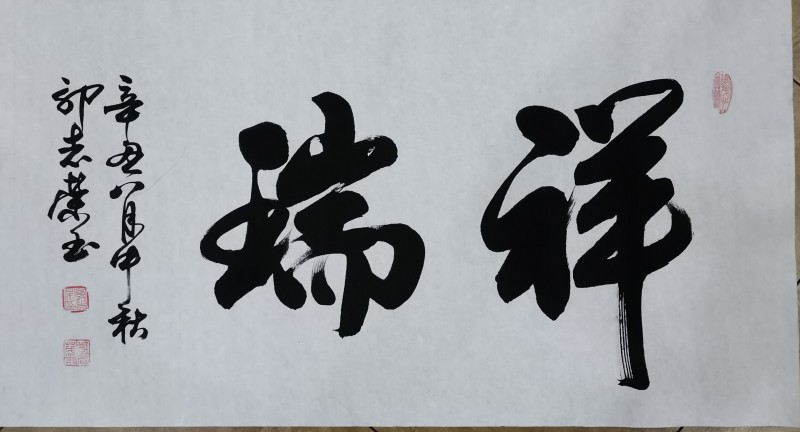 祥瑞
辛丑八月中秋
郭志荣书